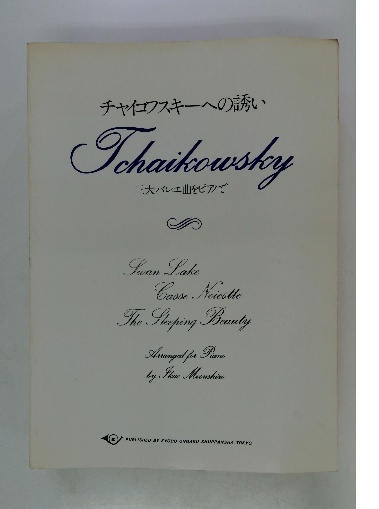 チャイコフスキーへの誘い
Tchaikowsky
三大バレエ曲をピアノで
Swan Lake
Casse Noisette
The Sleeping Beauty
Arranged for Piano
by
PUBLISHED BY KYODO ONGAKU SHUPPANSHA TOKYO